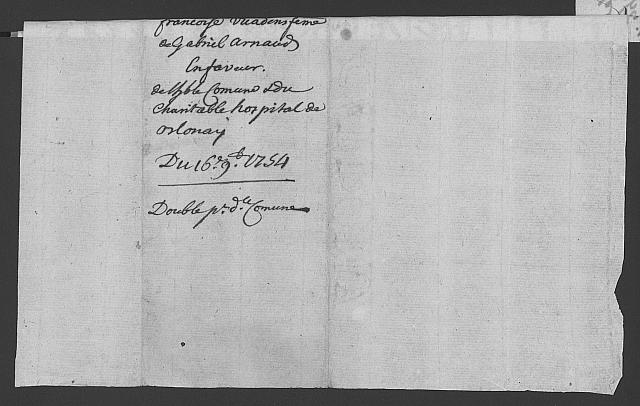 francoise vuadens feme
de Gabriel Arnaud
En faveur.
de l'hble Comune & du
Charitable hospital de
Du 16e. 9b. 1754
Double pr. d. le Comune